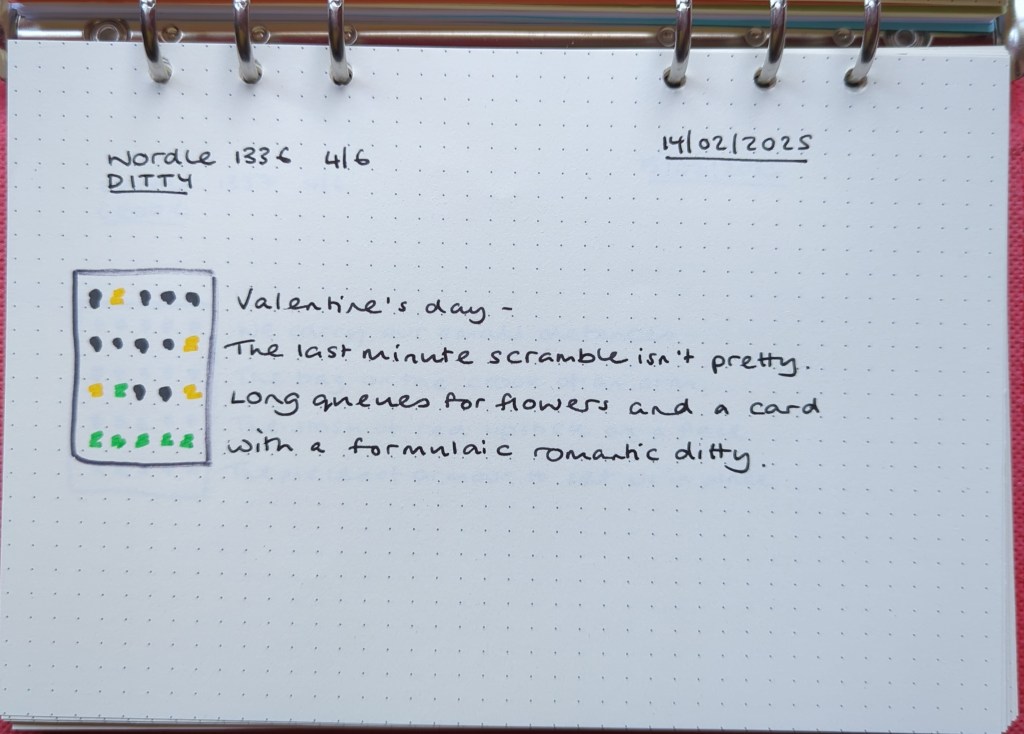 Wordle 1336 4/6
14/02/2025
DITTY
Valentine's day -
The last minute scramble isn't pretty.
Long queues for flowers and a card
with a formulaic romantic ditty.